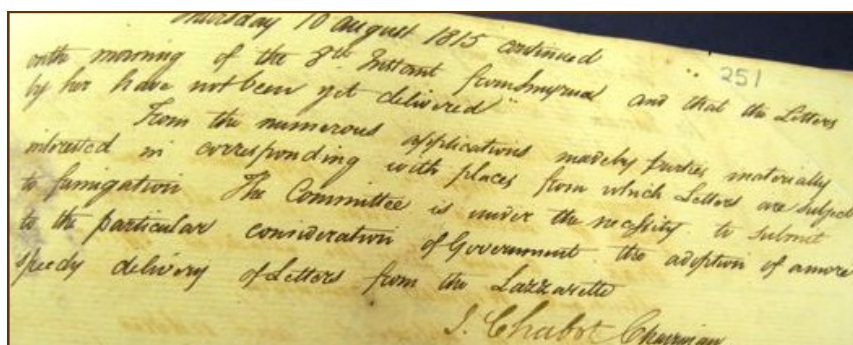 Thursday 10 August 1815 continued
251
on the morning of the 8th Instant from Smyrna and that the Letters
by her have not been yet delivered"
From the numerous applications made by parties materially
interested in corresponding with places from which Letters are subject
to fumigation The Committee is under the necessity to submit
to the particular consideration of Government the adoption of a more
speedy delivery of Letters from the Lazzarette
J. Chabot Chairman